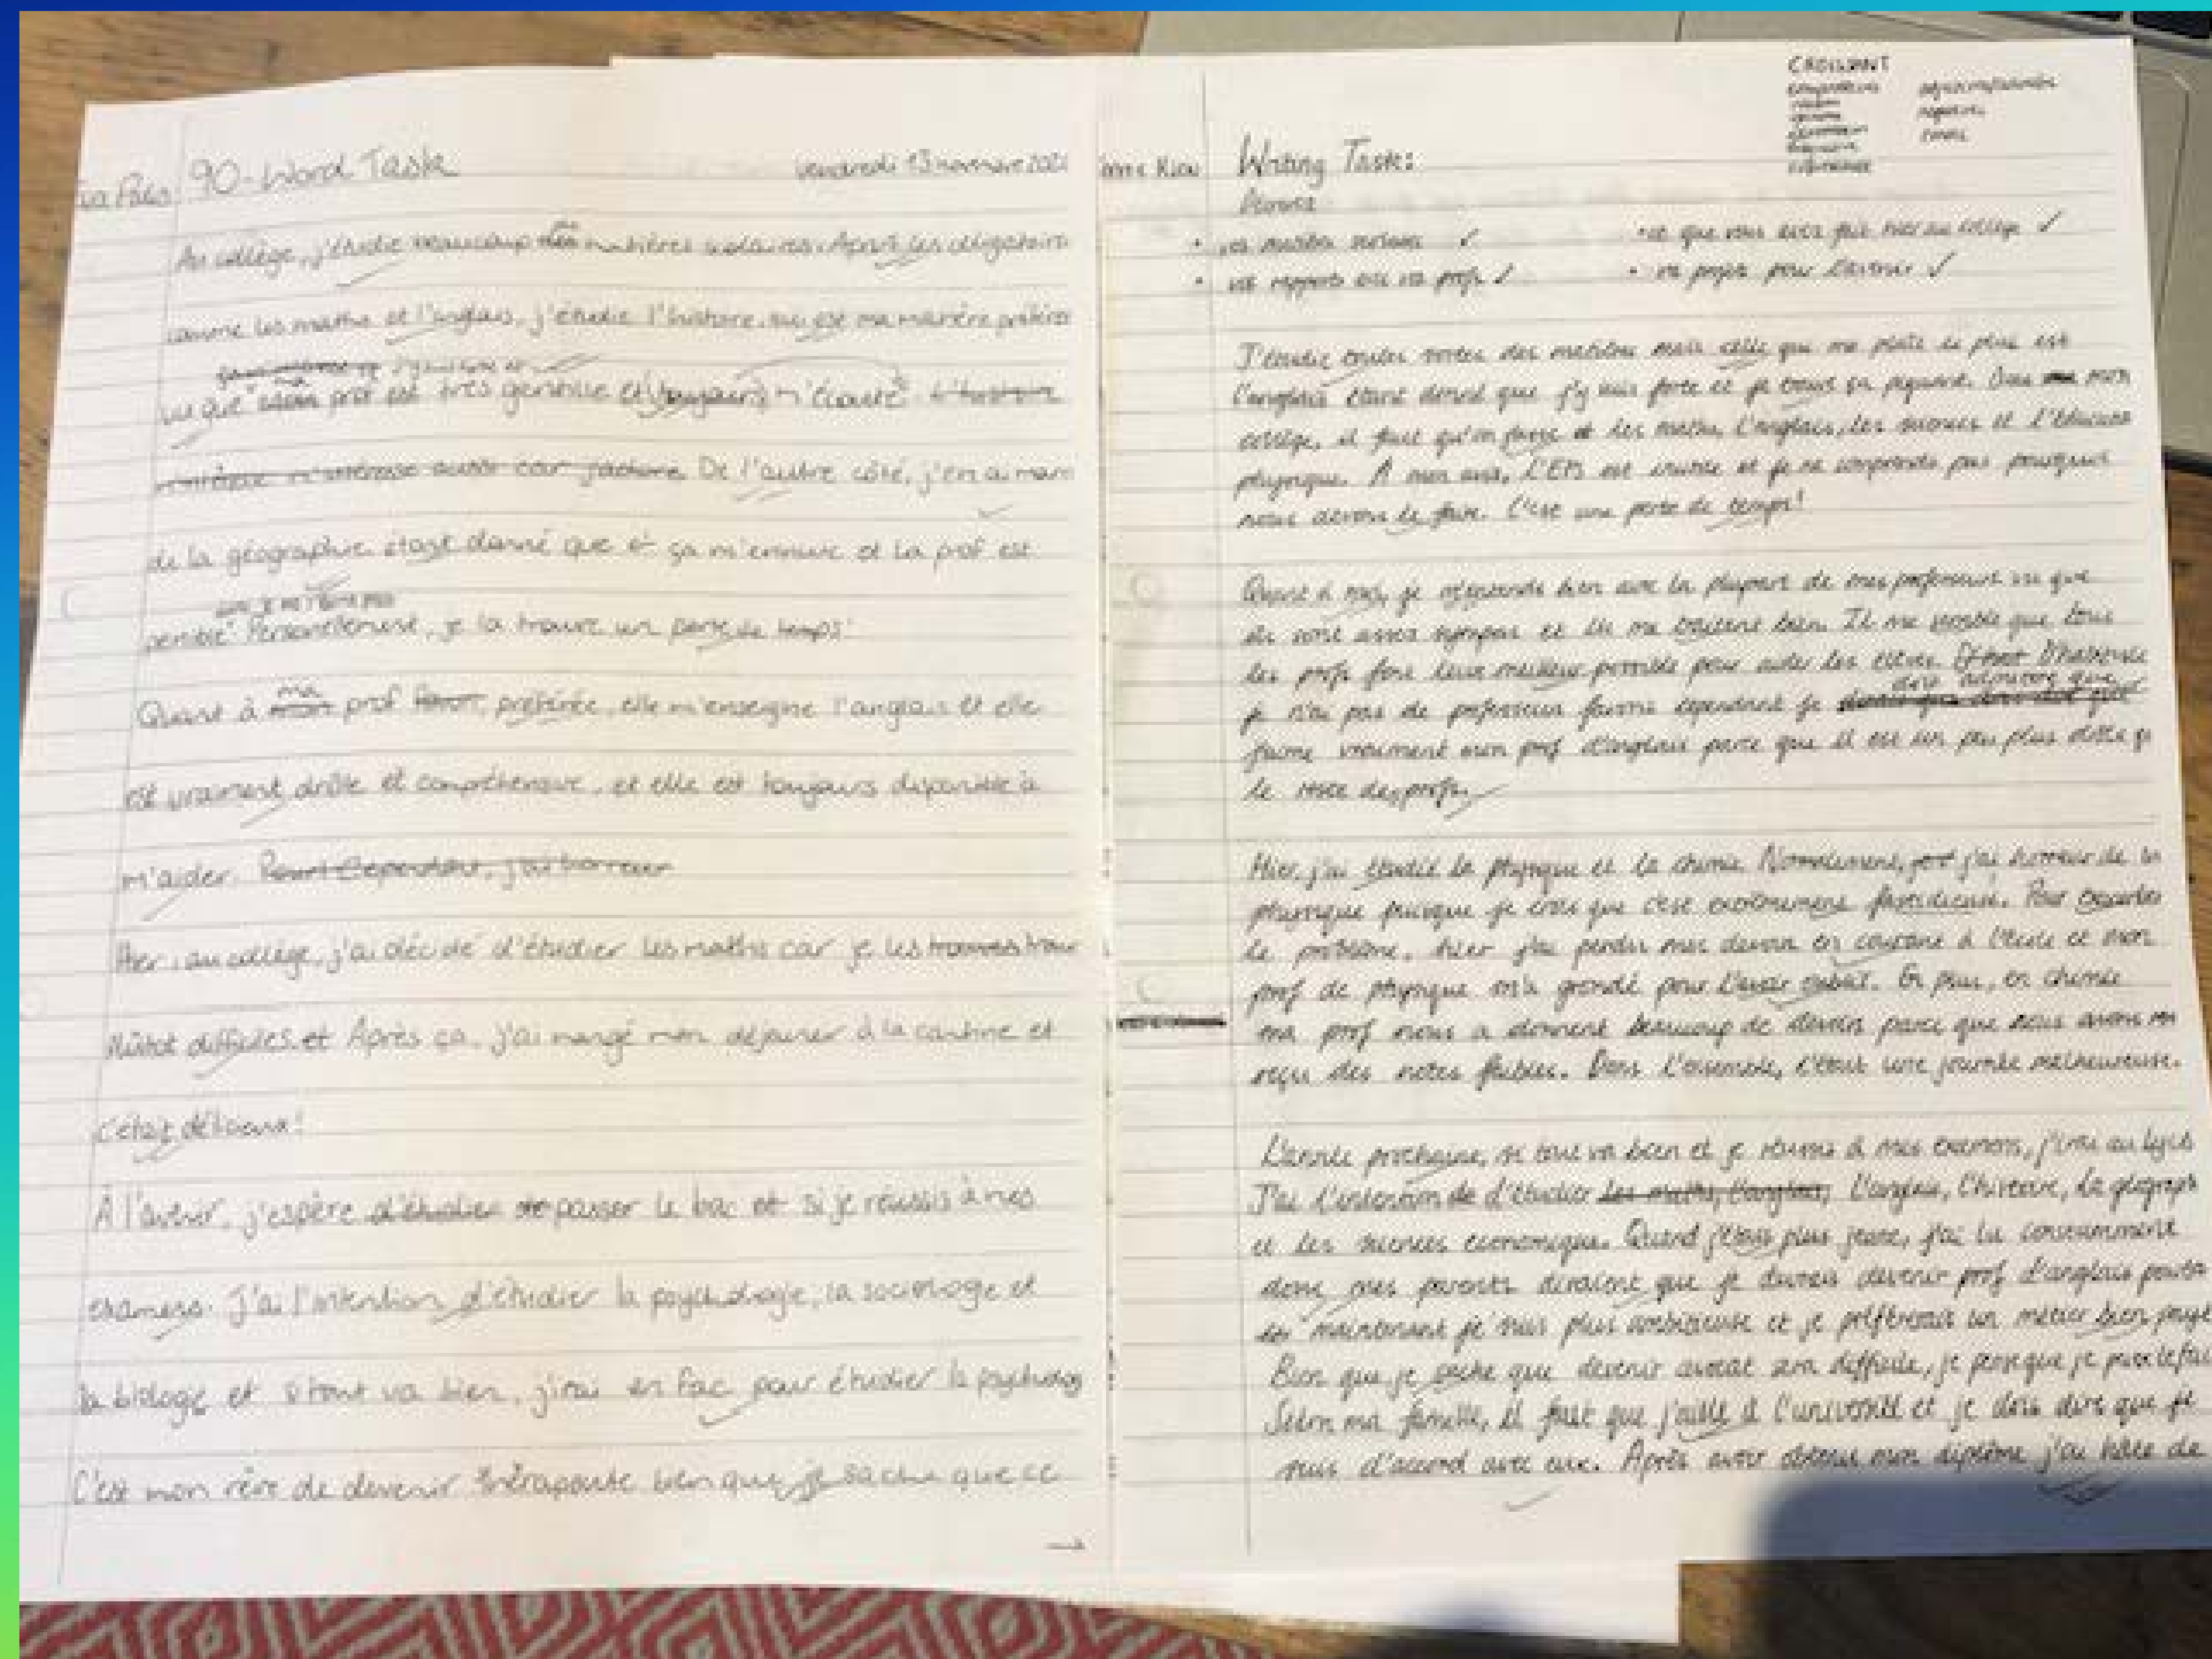 90-Word Task
vendredi 13 novembre
Au collège, j'étudie beaucoup matières scolaires. Après les obligatoires
comme les maths et l'anglais, j'étudie l'histoire, qui est ma matière préférée
vu que ma prof est très gentille et toujours m'écoute
De l'autre côté, j'en ai marre
de la géographie étant donné que ça m'ennuie et la prof est
pénible. Personellement, je la trouve un perte de temps!
Quant à ma prof préférée, elle m'enseigne l'anglais et elle
est vraiment drôle et compréhensive, et elle est toujours disponible à
m'aider.
Hier, au collège, j'ai décidé d'étudier les maths car je les
plutôt difficiles et Après ça, j'ai mangé mon déjeuner à la cantine et
c'était délicieux!
À l'avenir, j'espère passer le bac et si je réussis à mes
examens. J'ai l'intention d'étudier la psychologie, la sociologie et
la biologie et si tout va bien, j'irai en fac pour étudier la psycholog
C'est mon rêve de devenir thérapeute bien que je sache que ce
→
CROISSANT
Writing Task:
• vos matières scolaires ✓
• vos rapports avec vos profs ✓
• ce que vous avez fait hier au collège ✓
• vos projets pour l'avenir ✓
J'étudie toutes sortes des matières mais celle qui me plaît le plus est
l'anglais étant donné que j'y suis forte et je trouve ça piquant. Dans mon
collège, il faut qu'on fasse les maths, l'anglais, les sciences et l'éducation
physique. À mon avis, L'EPS est inutile et je ne comprends pas pourquoi
nous devons le faire. C'est une perte de temps!
Quant à moi, je m'entends bien avec la plupart de mes professeurs vu que
ils sont assez sympas et ils me traitent bien. Il me semble que tous
les profs font leur meilleur possible pour aider les élèves. D'habitude
je n'ai pas de professeur favori cependant je dois admettre que
j'aime vraiment mon prof d'anglais parce que il est un peu plus drôle q
le reste des profs.
Hier, j'ai étudié la physique et la chimie. Normalement, j'ai horreur de la
physique puisque je crois que c'est extrêmement fastidieuse. Pour exacerber
le problème, hier j'ai perdu mes devoirs en courant à l'école et mon
prof de physique m'a grondé pour l'avoir oublié. En plus, en chimie
ma prof nous a donnent beaucoup de devoirs parce que nous avons
reçu des notes faibles. Dans l'ensemble, c'était une journée malheureuse.
L'année prochaine, si tout va bien et je réussis à mes examens, j'irai au lycée
J'ai l'intention de d'étudier l'anglais, l'histoire, la géograph
et les sciences economiques. Quand j'étais plus jeune, j'ai lu constamment
donc mes parents diraient que je devrais devenir prof d'anglais
maintenant je suis plus ambitieuse et je préférerais un métier bien payé
Bien que je sache que devenir avocat sera difficile, je pense que je peux le fai
Selon ma famille, il faut que j'aille à l'université et je dois dire que je
suis d'accord avec eux. Après avoir obtenu mon diplôme j'ai hâte de